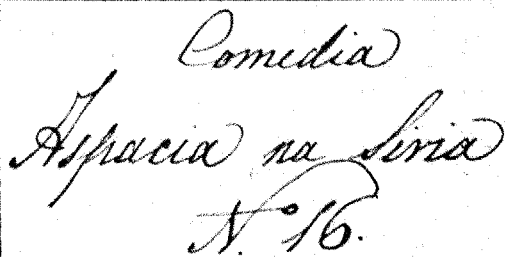 Comedia
Aspacia na Siria
N.º 16.